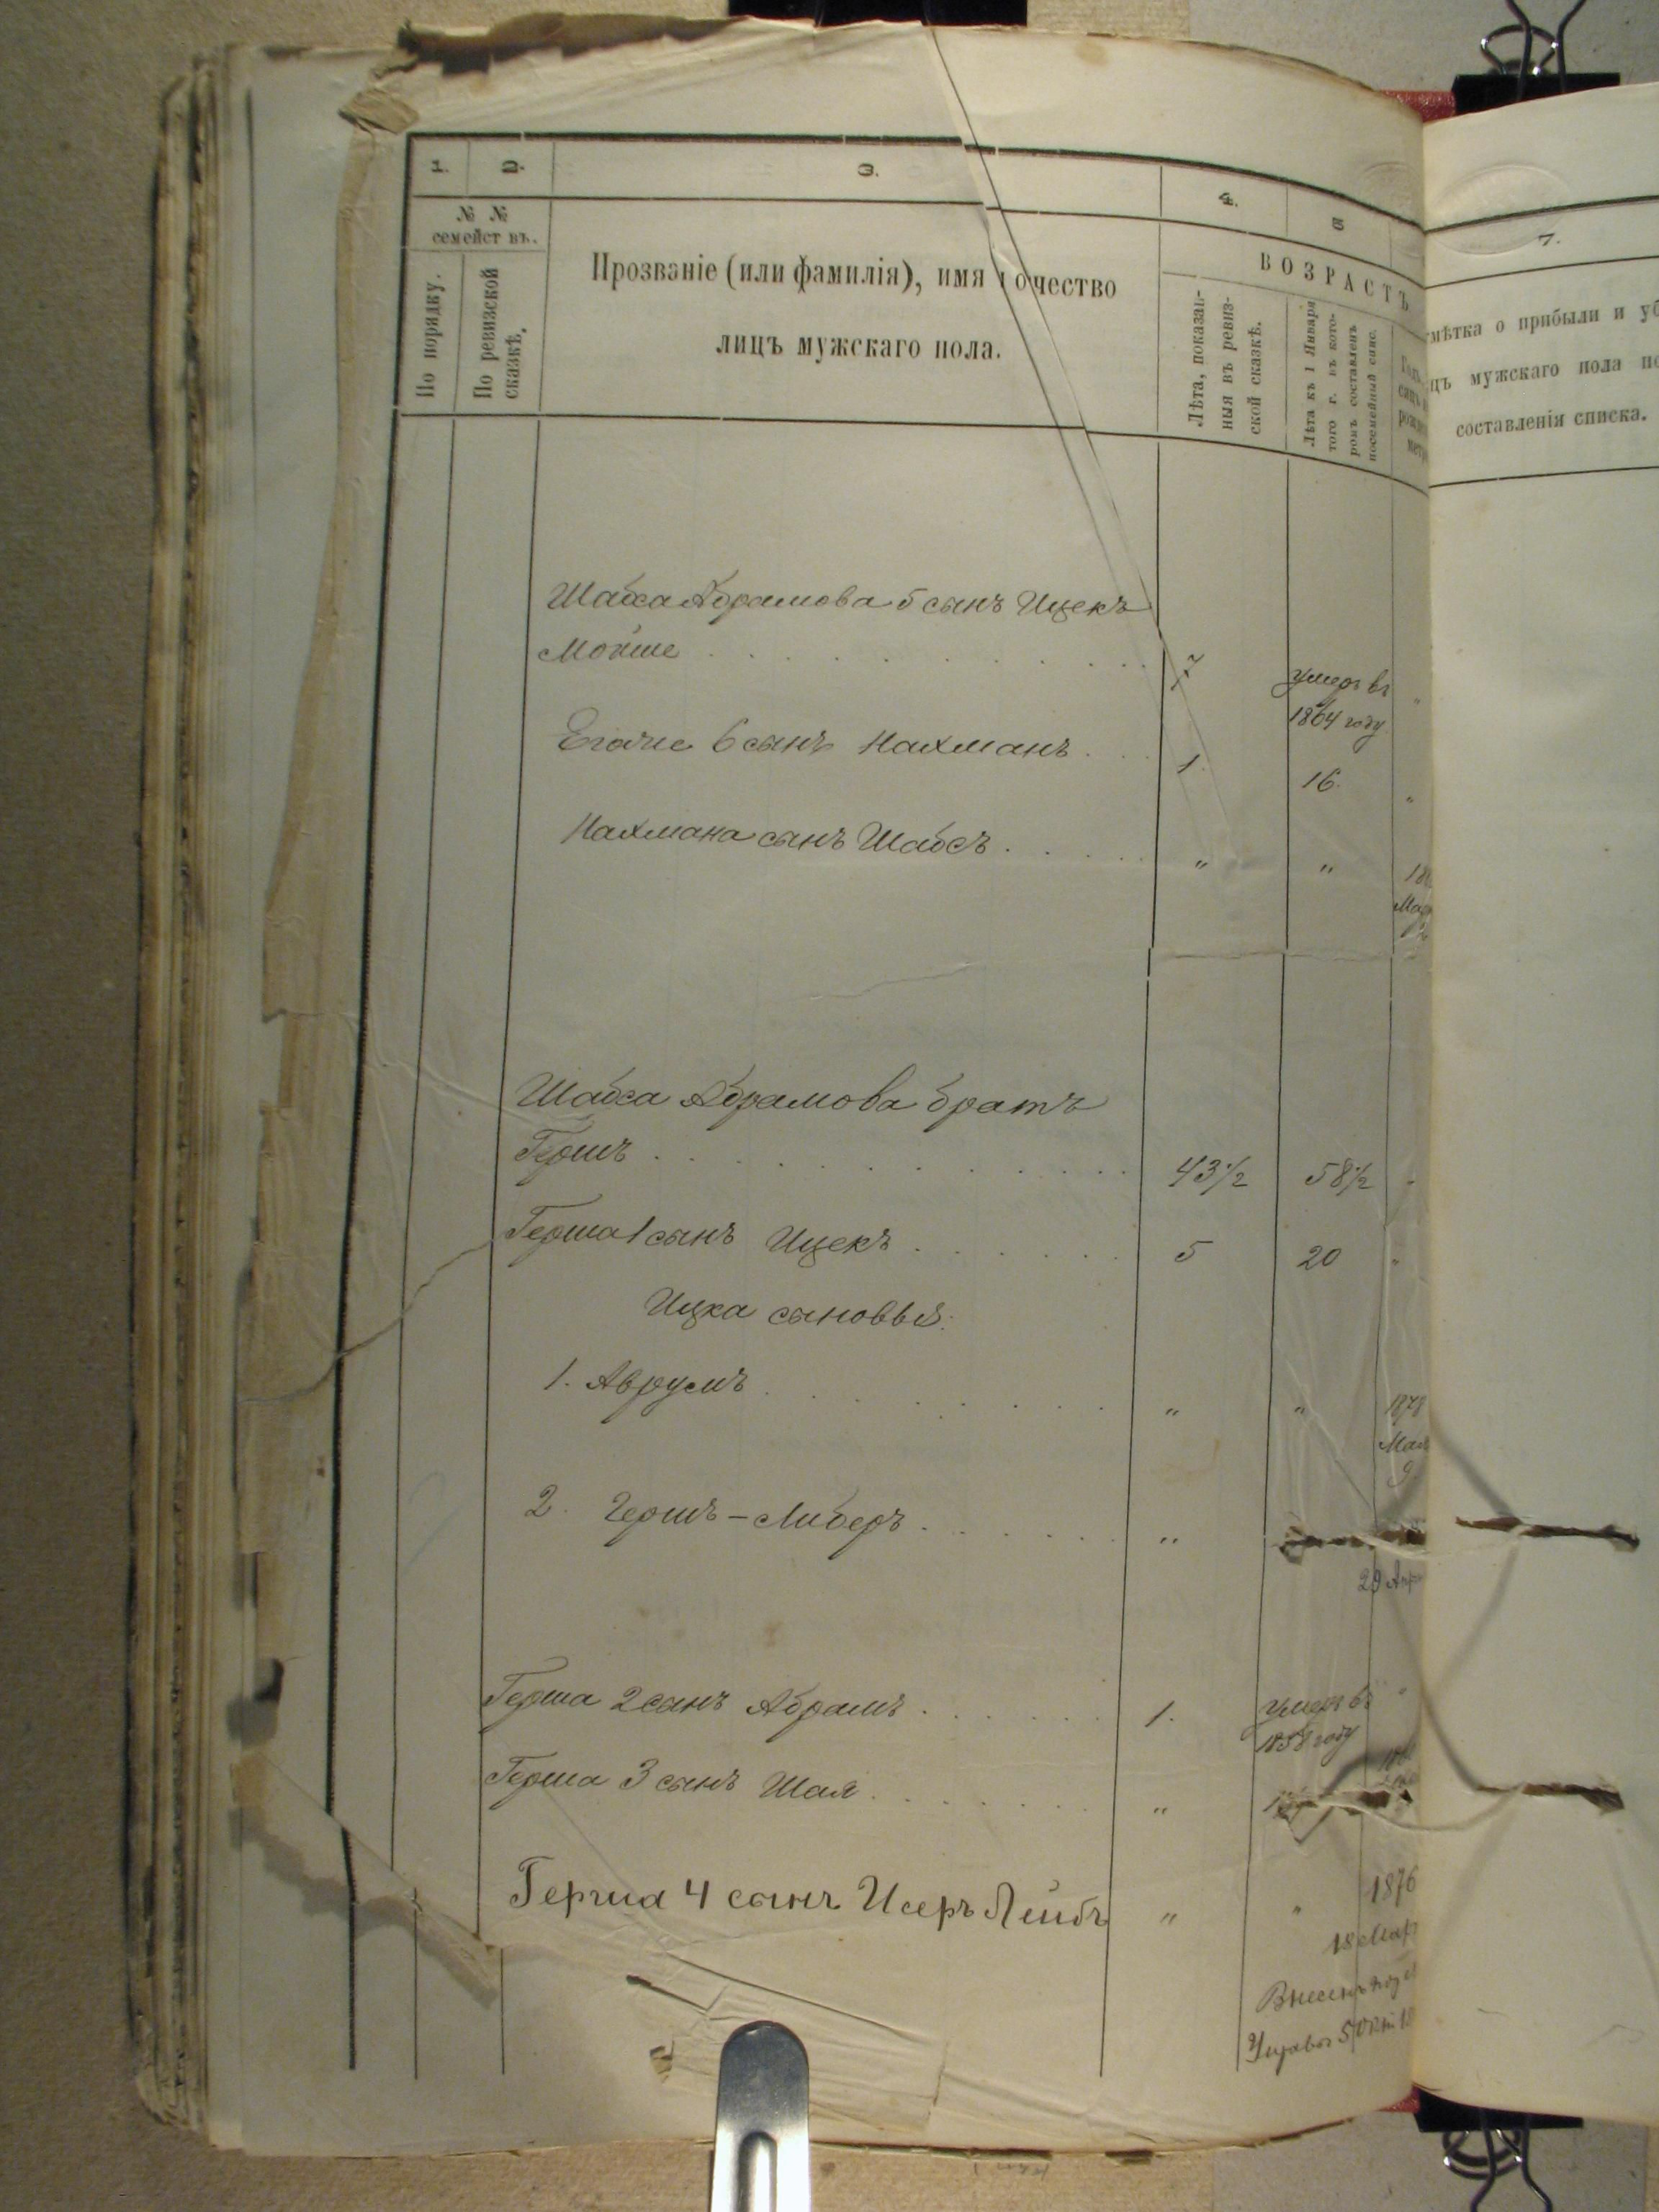 1. 2. 3. 4. 5
№ №
семействъ.
По порядку.
По ревизской
сказкѣ.
Прозваніе (или фамилія), имя и отчество
лицъ мужскаго пола.
ВОЗРАСТЪ
Лѣта, показан-
ныя въ ревиз-
ской сказкѣ.
Лѣта къ 1 Января
того г. въ кото-
ромъ составленъ
посемейный спис.
7.
мѣтка о прибыли и уб
цъ мужскаго пола по
составленія списка.
Шабса Абрамова 5 сынъ Ицекъ
Мойше 7 умеръ въ
1864 году
Егоже 6 сынъ Нахманъ 1. 16.
Нахмана сынъ Шабсъ " "
Шабса Абрамова братъ
Гершъ 43½ 58½
Герша 1 сынъ Ицекъ 5 20
Ицка сыновья:
1. Аврумъ " " 1878
Мая
9.
2. Гершъ-Либеръ "
29 Апр
Герша 2 сынъ Абрамъ 1. умеръ въ
1858 году
Герша 3 сынъ Шая "
Герша 4 сынъ Исеръ Лейбъ " " 1876
18 Мар
Внесенъ по
Управы 5